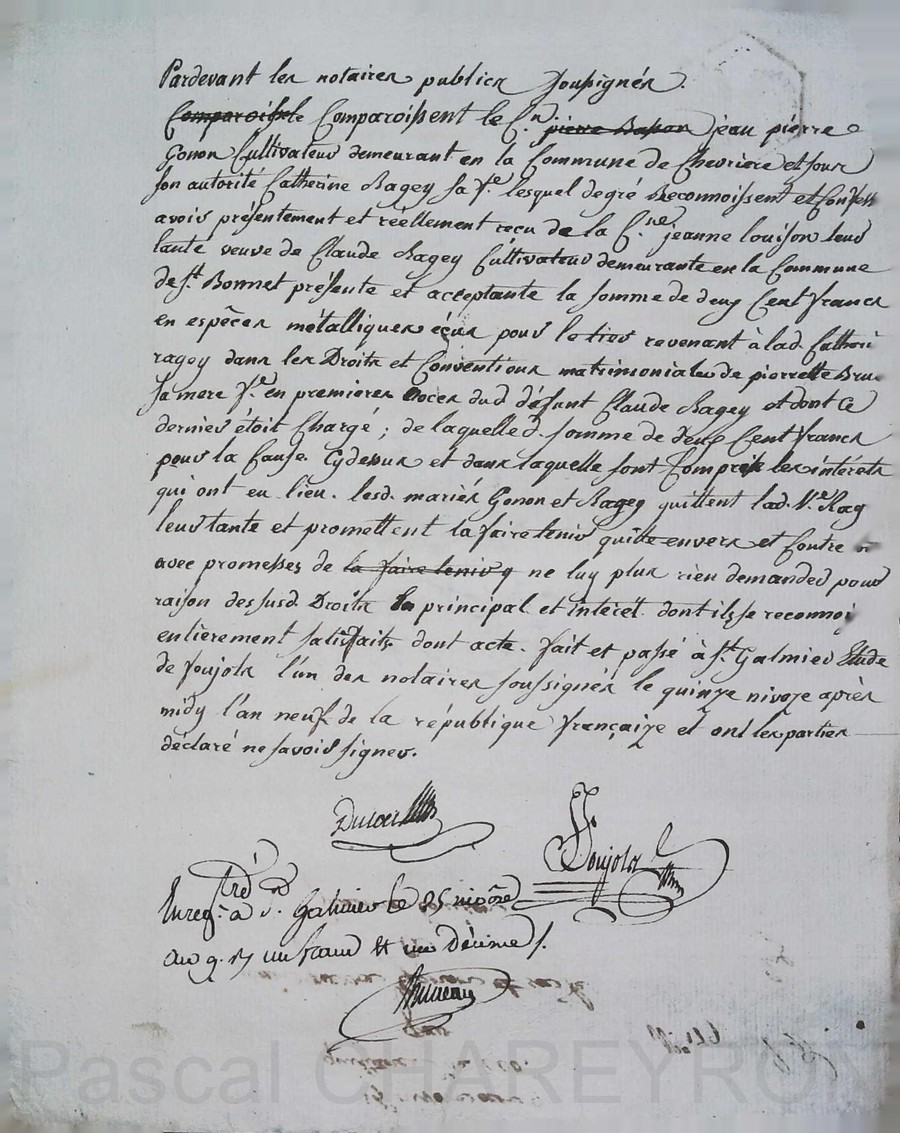 Pardevant les notaires publics soussignés.
Comparoissent le Comparoissent le C.n pierre jean pierre
Gonon Cultivateur demeurant en la Commune de Chevriere et sous
son autorité Catherine Ragey sa f.e lesquel de gré Reconnoissent et Confess
avoir présentement et réellement recu de la C.ne jeanne louison leur
tante veuve de Claude Ragey Cultivateur demeurante en la Commune
de S.t Bonnet présente et acceptante la somme de deux Cent francs
en espêces métalliques écus pour le tiers revenant à lad. Catheri
ragey dans les Droits et Conventions matrimoniales de pierrette Bru
sa mere V.e en premieres noces dud défunt Claude Ragey et dont Ce
dernier étoit Chargé ; de laquelle d. somme de deux Cent francs
pour la Cause Cydessus et dans laquelle sont Compris les intérets
qui ont eu lieu. lesd. mariés Gonon et Ragey quittent lad. V.e Rag
leur tante et promettent la faire tenir quitte envers et Contre
avec promesses de la faire tenir q ne luy plus rien demander pour
raison desusd. Droits en principal et intérêt dont ils se reconnoi
entièrement satisfaits dont acte. fait et passé à S.t Galmier Etude
de Joujols l'un des notaires soussignés le quinze nivoze après
midy l'an neuf de la république françaize et ont les parties
déclaré ne savoir signer.
Joujols
Enreg.é à S.t Galmier le 25 nivôse
an 9. R un franc et un Décime
Pascal CHAREYRON